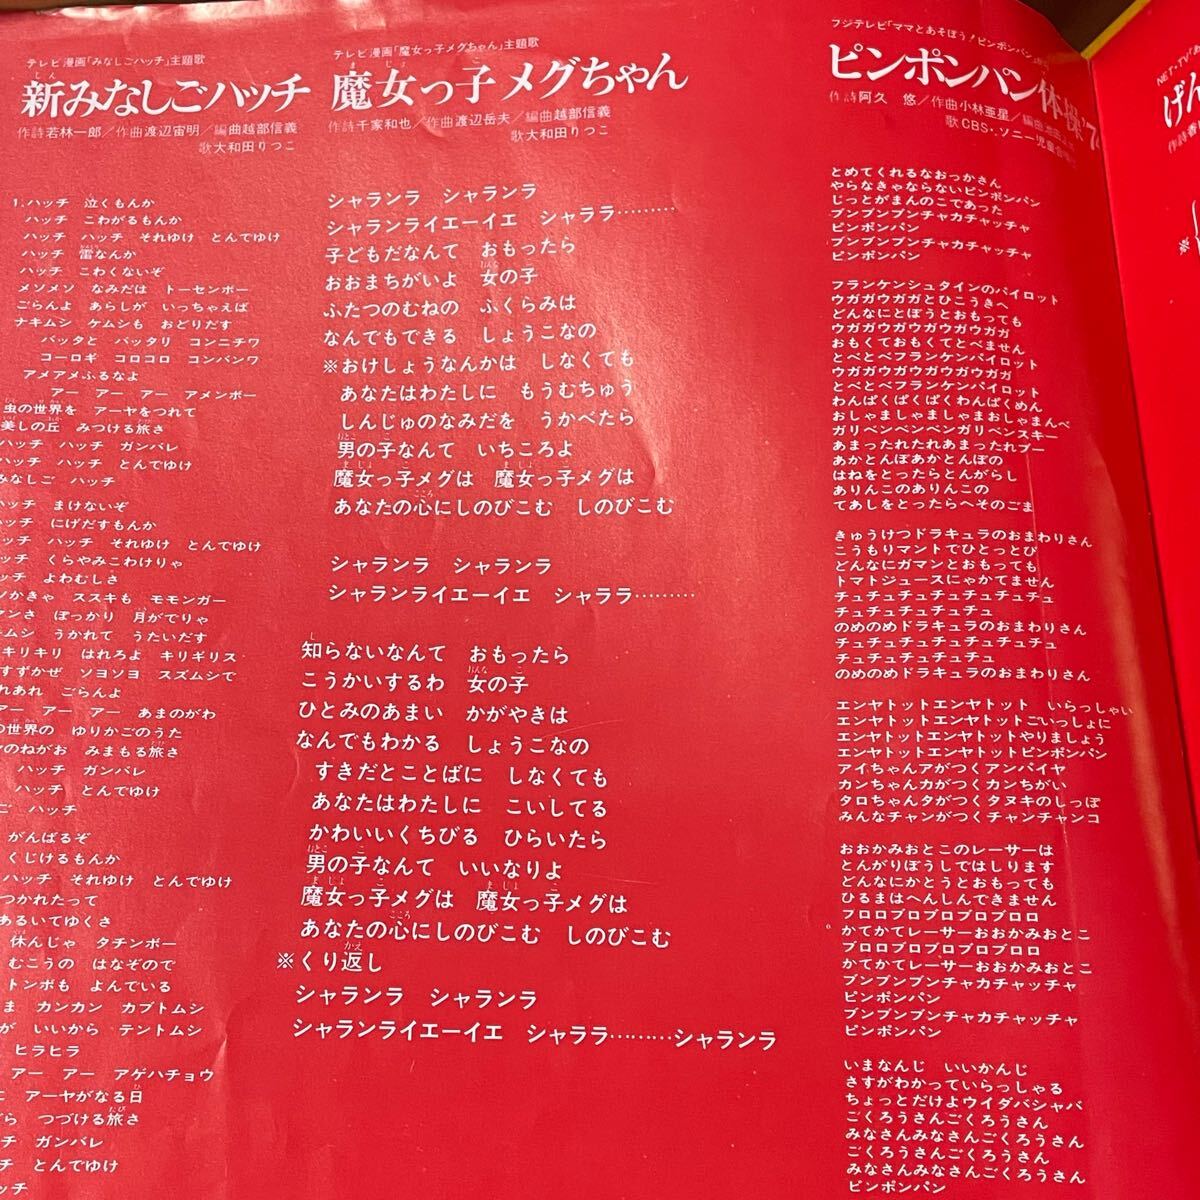 テレビ漫画「みなしごハッチ」主題歌
新みなしごハッチ
作詩若林一郎／作曲渡辺宙明／編曲越部信義
歌大和田りつこ
1.ハッチ　泣くもんか
ハッチ　こわがるもんか
ハッチ　ハッチ　それゆけ　とんでゆけ
ハッチ　雷なんか
ハッチ　こわくないぞ
メソメソ　なみだは　トーセンボー
ごらんよ　あらしが　いっちゃえば
ナキムシ　ケムシも　おどりだす
バッタと　バッタリ　コンニチワ
コーロギ　コロコロ　コンバンワ
アメアメふるなよ
アー　アー　アー　アメンボー
虫の世界を　アーヤをつれて
美しの丘　みつける旅さ
ハッチ　ハッチ　ガンバレ
ハッチ　ハッチ　とんでゆけ
みなしご　ハッチ
ハッチ　まけないぞ
ハッチ　にげだすもんか
ッチ　ハッチ　それゆけ　とんでゆけ
ッチ　くらやみこわけりゃ
ッチ　よわむしさ
ンかきゃ　ススキも　モモンガー
マンさ　ぽっかり　月がでりゃ
ムシ　うかれて　うたいだす
キリキリ　はれろよ　キリギリス
すずかぜ　ソヨソヨ　スズムシで
れあれ　ごらんよ
アー　アー　アー　あまのがわ
の世界の　ゆりかごのうた
ヤのねがお　みまもる旅さ
ハッチ　ガンバレ
ハッチ　とんでゆけ
ご　ハッチ
がんばるぞ
くじけるもんか
ハッチ　それゆけ　とんでゆけ
つかれたって
あるいてゆくさ
休んじゃ　タチンボー
むこうの　はなぞので
トンボも　よんでいる
ま　カンカン　カブトムシ
が　いいから　テントムシ
ヒラヒラ
アー　アー　アゲハチョウ
に　アーヤがなる日
つづける旅さ
チ　ガンバレ
チ　とんでゆけ
ッチ
テレビ漫画「魔女っ子メグちゃん」主題歌
魔女っ子メグちゃん
作詩千家和也／作曲渡辺岳夫／編曲越部信義
歌大和田りつこ
シャランラ　シャランラ
シャランライエーイエ　シャララ………
子どもだなんて　おもったら
おおまちがいよ　女の子
ふたつのむねの　ふくらみは
なんでもできる　しょうこなの
※おけしょうなんかは　しなくても
あなたはわたしに　もうむちゅう
しんじゅのなみだを　うかべたら
男の子なんて　いちころよ
魔女っ子メグは　魔女っ子メグは
あなたの心にしのびこむ　しのびこむ
シャランラ　シャランラ
シャランライエーイエ　シャララ………
知らないなんて　おもったら
こうかいするわ　女の子
ひとみのあまい　かがやきは
なんでもわかる　しょうこなの
すきだとことばに　しなくても
あなたはわたしに　こいしてる
かわいいくちびる　ひらいたら
男の子なんて　いいなりよ
魔女っ子メグは　魔女っ子メグは
あなたの心にしのびこむ　しのびこむ
※くり返し
シャランラ　シャランラ
シャランライエーイエ　シャララ………シャランラ
フジテレビ「ママとあそぼう！ピンポンパン」
ピンポンパン体操'74
作詩阿久　悠／作曲小林亜星／編曲
歌CBS・ソニー児童合唱
とめてくれるなおっかさん
やらなきゃならないピンポンパン
じっとがまんのこであった
ブンブンブンチャカチャッチャ
ピンポンパン
ブンブンブンチャカチャッチャ
ピンポンパン
フランケンシュタインのパイロット
ウガガウガガとひこうきへ
どんなにとぼうとおもっても
ウガガウガガウガガウガガ
おもくておもくてとべません
とべとべフランケンパイロット
ウガガウガガウガガウガガ
とべとべフランケンパイロット
わんぱくぱくぱくわんぱくめん
おしゃましゃましゃまおしゃまんべ
ガリベンベンベンガリベンスキー
あまったれたれあまったれプー
あかとんぼあかとんぼの
はねをとったらとんがらし
ありんこのありんこの
てあしをとったらへそのごま
きゅうけつドラキュラのおまわりさん
こうもりマントでひとっとび
どんなにガマンとおもっても
トマトジュースにゃかてません
チュチュチュチュチュチュチュチュ
チュチュチュチュチュチュ
のめのめドラキュラのおまわりさん
チュチュチュチュチュチュチュチュ
チュチュチュチュチュチュ
のめのめドラキュラのおまわりさん
エンヤトットエンヤトット　いらっしゃい
エンヤトットエンヤトットごいっしょに
エンヤトットエンヤトットやりましょう
エンヤトットエンヤトットピンポンパン
アイちゃんアがつくアンパイヤ
カンちゃんカがつくカンちがい
タロちゃんタがつくタヌキのしっぽ
みんなチャンがつくチャンチャンコ
おおかみおとこのレーサーは
とんがりぼうしではしります
どんなにかとうとおもっても
ひるまはへんしんできません
フロロブロブロブロブロロ
かてかてレーサーおおかみおとこ
ブロロブロブロブロブロロ
かてかてレーサーおおかみおとこ
ブンブンブンチャカチャッチャ
ピンポンパン
ブンブンブンチャカチャッチャ
ピンポンパン
いまなんじ　いいかんじ
さすがわかっていらっしゃる
ちょっとだけよウイダバシャバ
ごくろうさんごくろうさん
みなさんみなさんごくろうさん
ごくろうさんごくろうさん
みなさんみなさんごくろうさん
ピンポンパン
NET・TV
げん
作詩香
※